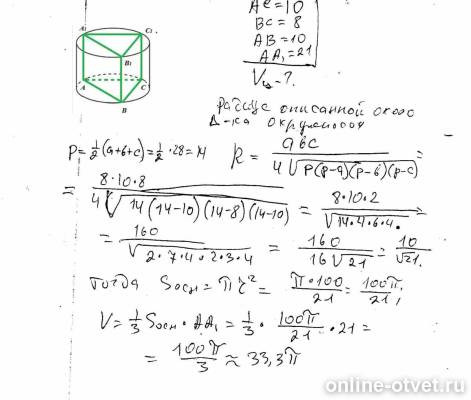 AC=10
BC=8
AB=10
AA₁=21
V - ?
A₁ C₁
B₁
A C
B
Радиус описанной около
Δ-ка окружности
p=½(a+b+c)=½·28=14
R = abc / 4√(p(p-a)(p-b)(p-c)) =
= 8·10·8 / 4√(14(14-10)(14-8)(14-10)) = 8·10·2 / √(14·4·6·4) =
= 160 / √(2·7·4·2·3·4) = 160 / 16√21 = 10 / √21.
тогда Sосн = πr² = π·100 / 21 = 100π / 21;
V = ⅓ Sосн · AA₁ = ⅓ · 100π / 21 · 21 =
= 100π / 3 ≈ 33,3π
online-otvet.ru